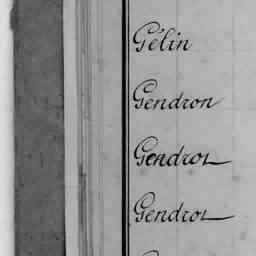 Gélin
Gendron
Gendron
Gendron